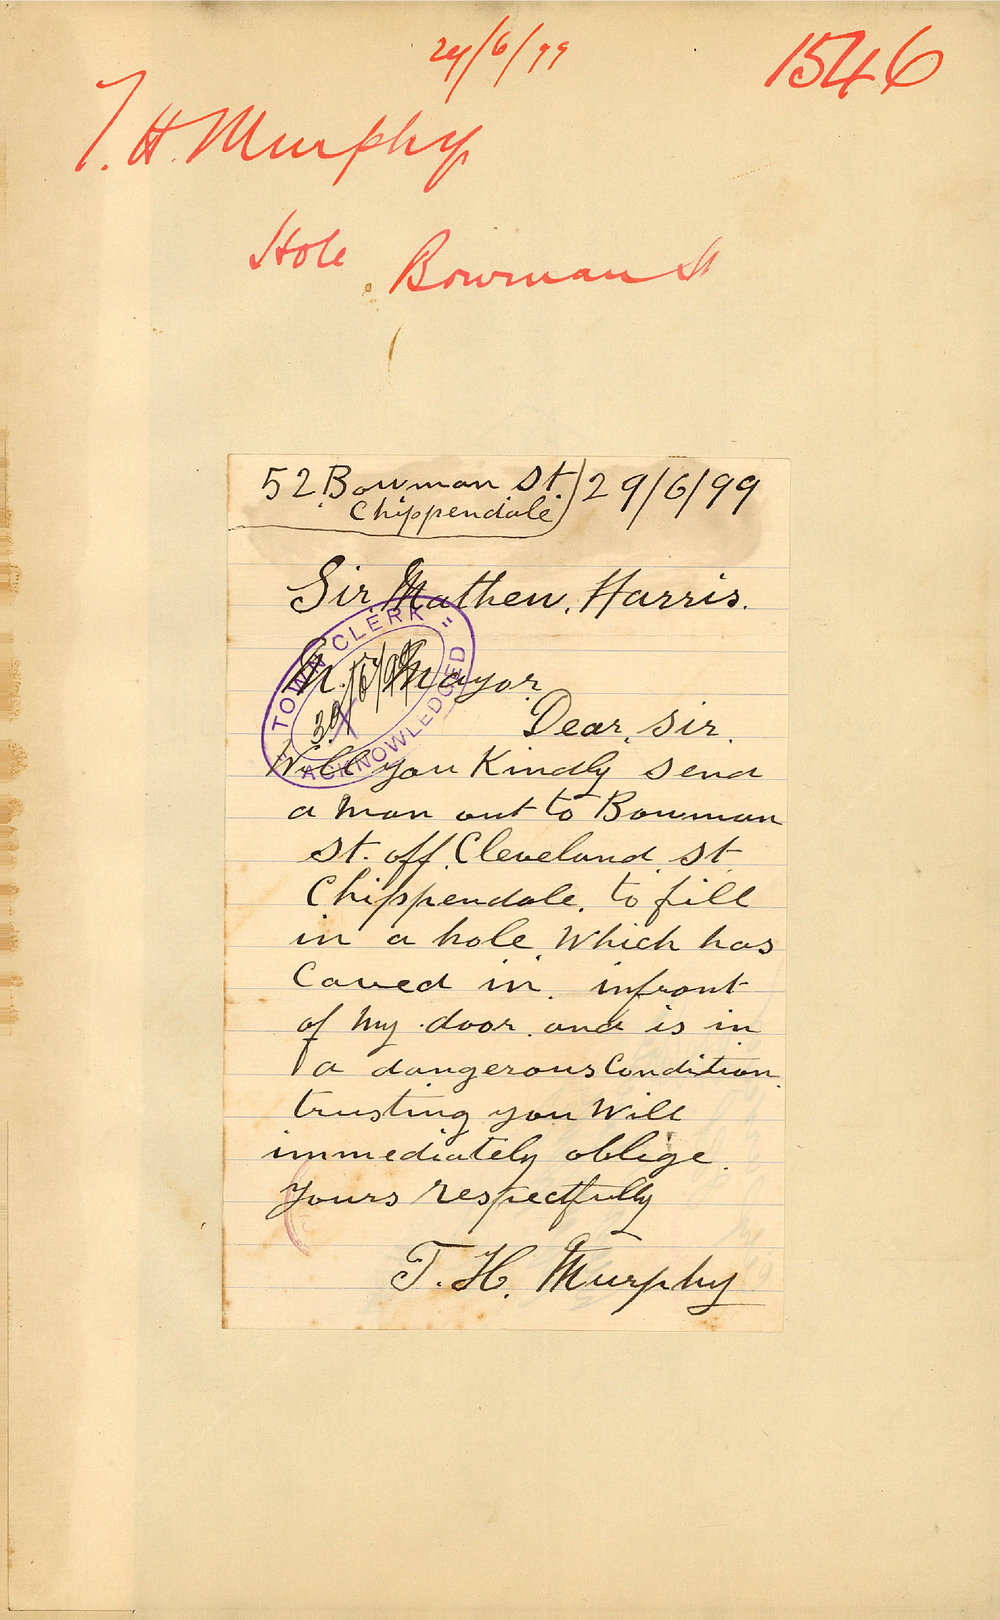 29/6/99
1546
T. H. Murphy
Hole Bowman St
52 Bowman St. 29/6/99
Chippendale
Sir, Mathew, Harris.
Mayor
Dear, Sir.
Will you Kindly send
a man out to Bowman
St. off. Cleveland. St
Chippendale. to fill
in a hole. Which has
Caved in. infront
of my door. and is in
a dangerous Condition.
trusting you Will
immediately oblige.
yours respectfully
T. H. Murphy
TOWN CLERK
30/6/99
ACKNOWLEDGED